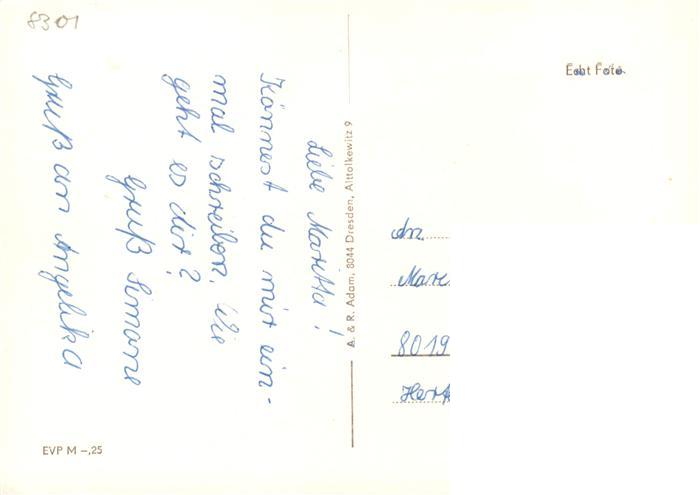 8301
Liebe Maritta!
Könnest du mir ein-
mal schreiben. Wie
geht es dir?
Gruß Simone
Gruß an Angelika
EVP M –,25
A. & R. Adam, 8044 Dresden, Alttolkewitz 9
Echt Foto
An
Mare
8019